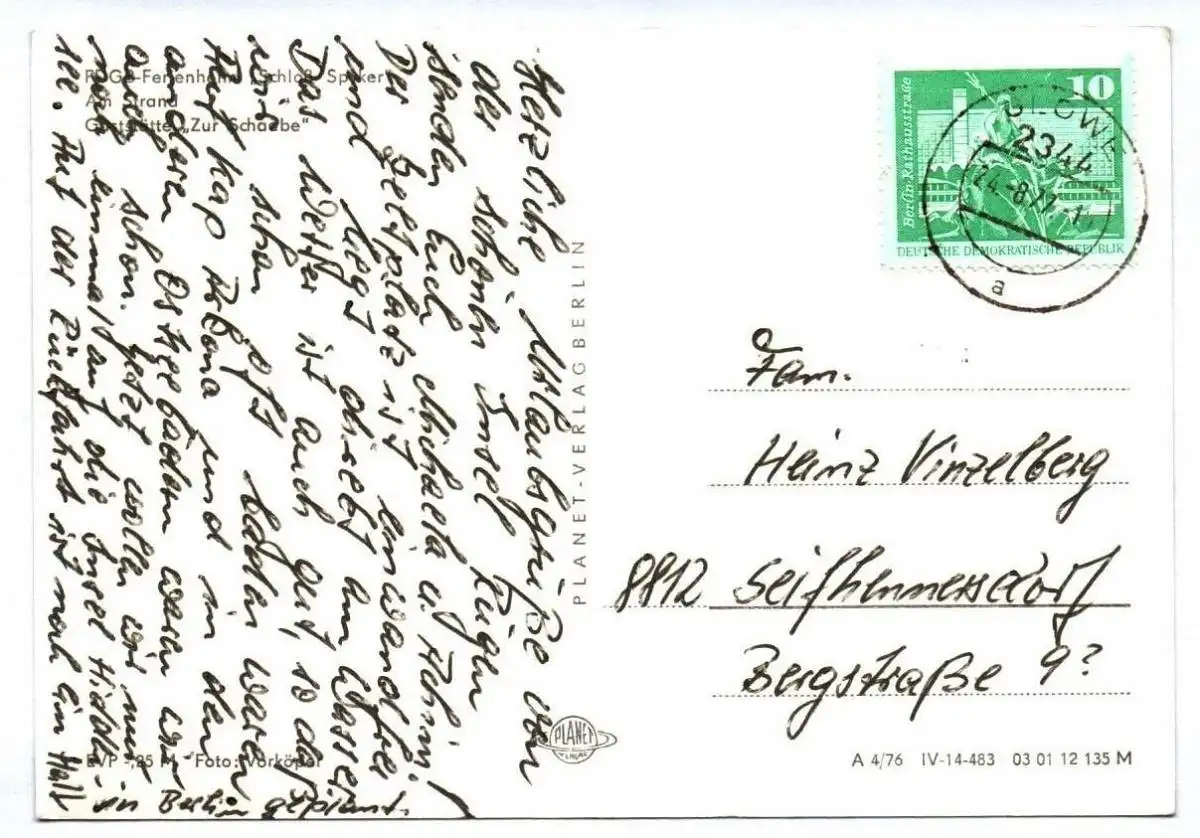 FDGB-Ferienheim „Schloß Spyker"
Am Strand
Gaststätte „Zur Schaabe"
Herzliche Urlaubsgrüße von
der schönen Insel Rügen
senden Euch Michaela u. Achim!
Der Zeltplatz ist einwandfrei
und liegt direkt am Wasser.
Das Wetter ist auch gut, so daß
wir schon oft baden waren.
Auf Kap Arkona und in den
anderen Ostseebädern waren wir
auch schon. Jetzt wollen wir nur
noch einmal auf die Insel Hidden-
see. Auf der Rückfahrt ist noch ein Halt
in Berlin geplant.
EVP -,25 M Foto: Vorköper
PLANET-VERLAG BERLIN
PLANET
VERLAG
10
Berlin-Rathausstraße
DEUTSCHE DEMOKRATISCHE REPUBLIK
GLOWE
2344
24.-8.77
a
Fam.
Heinz Vinzelberg
8812 Seifhennersdorf
Bergstraße 9?
A 4/76 IV-14-483 03 01 12 135 M